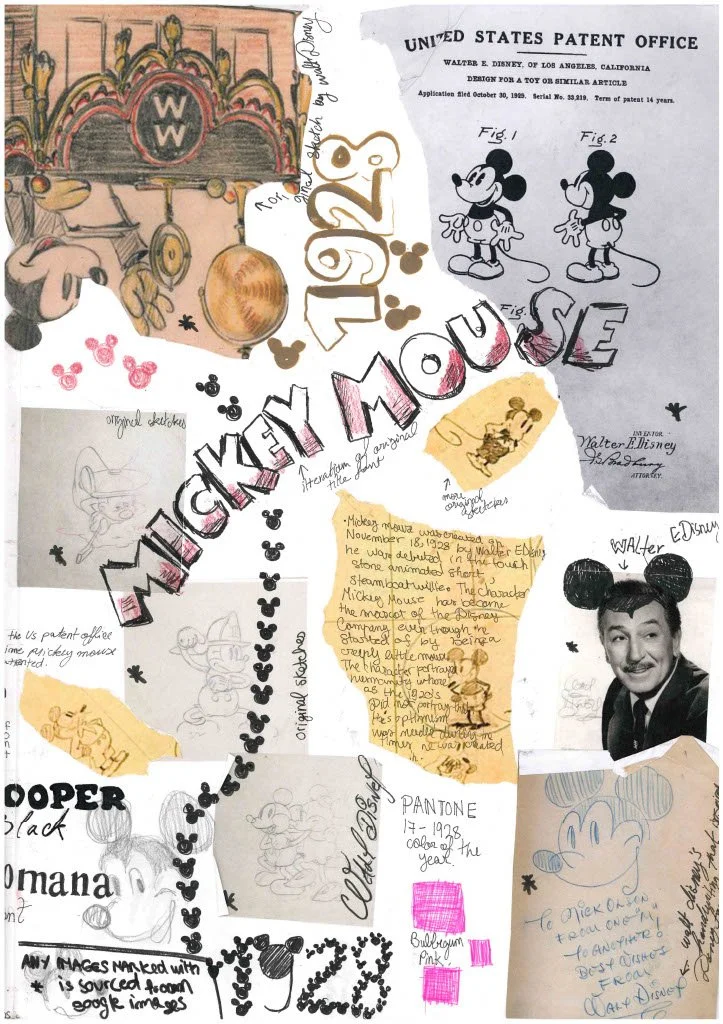 W
W
original sketch by Walt Disney
1928
UNITED STATES PATENT OFFICE
WALTER E. DISNEY, OF LOS ANGELES, CALIFORNIA
DESIGN FOR A TOY OR SIMILAR ARTICLE
Application filed October 30, 1929. Serial No. 33,219. Term of patent 14 years.
Fig. 1
Fig. 2
Fig.
INVENTOR
Walter E. Disney
ATTORNEY.
MICKEY MOUSE
original sketches
iteration of original
title font
more
original
sketches
Mickey mouse was created on
November 18, 1928 by Walter E Disney
he was debuted in the
animated short
steamboat willie. The character
Mickey Mouse has become
the mascot of the Disney
Company even though he
started of by being a
little mouse
The character portrays
humanity where
as the 1920's
Did not portray that
optimism
was needed during the
times he was created
in.
WALTER E DISNEY
the US patent office
time Mickey mouse
original sketches
OOPER
Black
omana
Walt Disney
PANTONE
17-1928
color of the
year.
Bubblegum
Pink.
ANY IMAGES MARKED with
* is sourced from
google images
1928
TO
FROM ONE "M"
TO ANOTHER!
BEST WISHES
FROM
WALT DISNEY
walt disney's